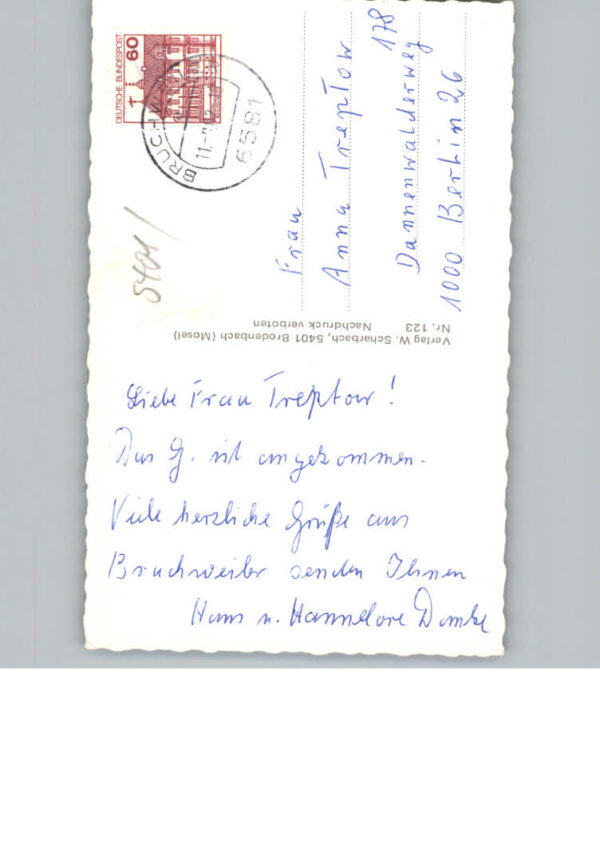 DEUTSCHE BUNDESPOST
60
6581
Frau
Anna Treptow
Dannenwalderweg 178
1000 Berlin 26
5401/
Verlag W. Scharbach, 5401 Brodenbach (Mosel)
Nr. 123 Nachdruck verboten
Liebe Frau Treptow!
Das G. ist angekommen.
Viele herzliche Grüße aus
Bruchweiler senden Ihnen
Hans u. Hannelore Domke